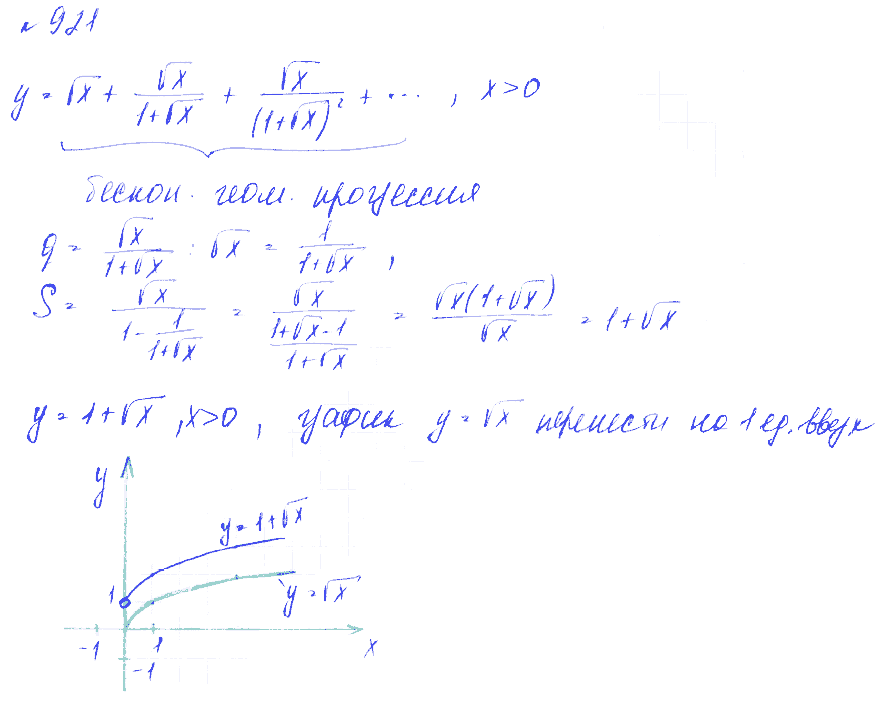 № 921
y = √x + √x/(1+√x) + √x/(1+√x)² + ... , x>0
бескон. геом. прогрессия
q = √x/(1+√x) : √x = 1/(1+√x) ,
S = √x/(1 - 1/(1+√x)) = √x/((1+√x-1)/(1+√x)) = √x(1+√x)/√x = 1+√x
y = 1+√x , x>0 , график y = √x перенести на 1 ед. вверх
y
y = 1+√x
1
y = √x
-1 1 x
-1